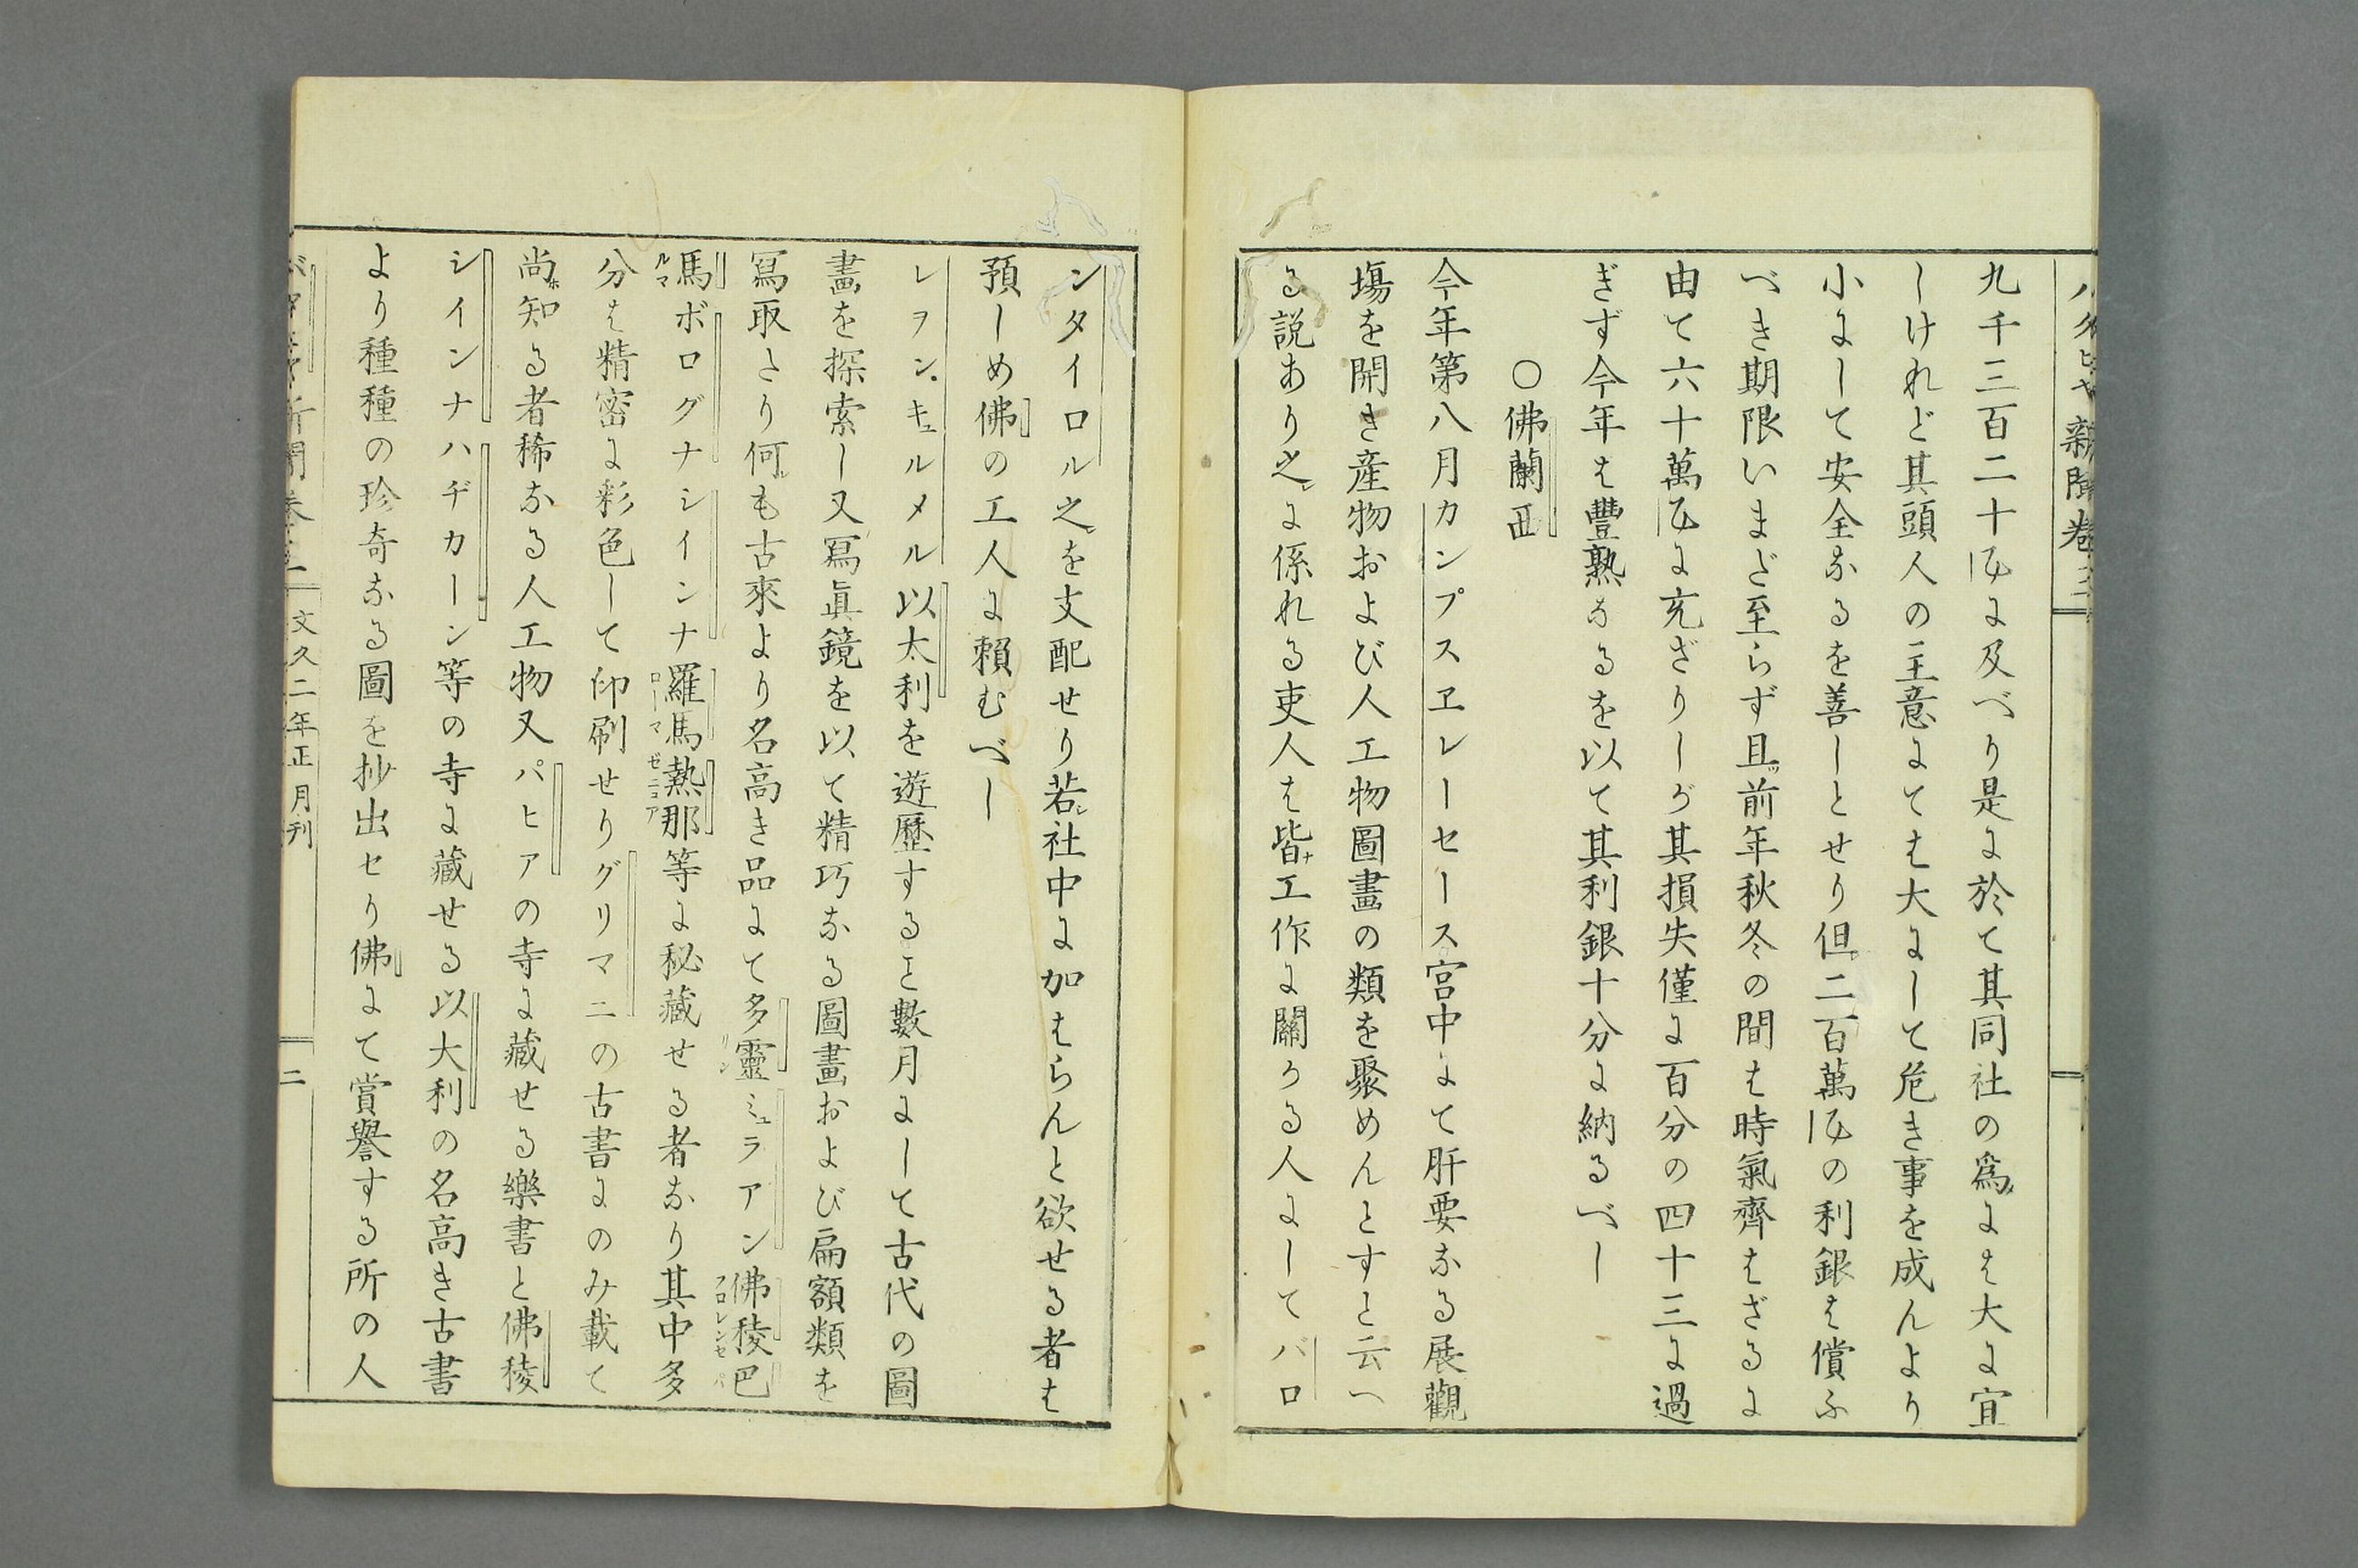 九千三百二十に及べり是に於て其同社の爲メには大に宜
しけれど其頭人の主意にては大にして危き事を成んより
小にして安全なるを善しとせり但シ二百萬の利銀は償ふ
べき期限いまだ至らず且ツ前年秋冬の間は時氣齊はざるに
由て六十萬に充ざりしが其損失僅に百分の四十三に過
ぎず今年は豐熟なるを以て其利銀十分に納るべし
〇佛蘭西
今年第八月カンプスヱレーセース宮中にて肝要なる展觀
塲を開き産物および人工物圖畫の類を聚めんとすと云へ
る説あり之レに係れる吏人は皆ナ工作に關かる人にしてバロ
ンタイロル之を支配せり若シ社中に加はらんと欲せる者は
預しめ佛の工人に賴むべし
レヲン、キュルメル以太利を遊歷すると數月にして古代の圖
畫を探索し又冩眞鏡を以て精巧なる圖畫および扁額類を
冩取たり何も古來より名高き品にて多靈リンミュラアン佛稜フロレンセ巴パ
馬ルマボログナシインナ羅馬ローマ熱那ゼニュア等に秘藏せる者なり其中多
分は精密に彩色して印刷せりグリマニの古書にのみ載て
尚ホ知る者稀なる人工物又パヒアの寺に藏せる樂書と佛稜
シインナハヂカーン等の寺に藏せる以大利の名高き古書
より種種の珍奇なる圖を抄出セり佛にて賞譽する所の人
文久二年正月刊
二